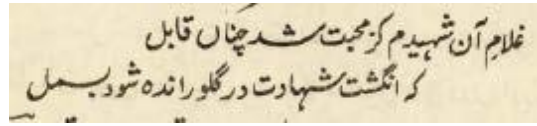 غلامِ آن شہیدم کز محبت شد چناں قابل
کہ انگشت شہادت در گلو راندہ شود بسمل